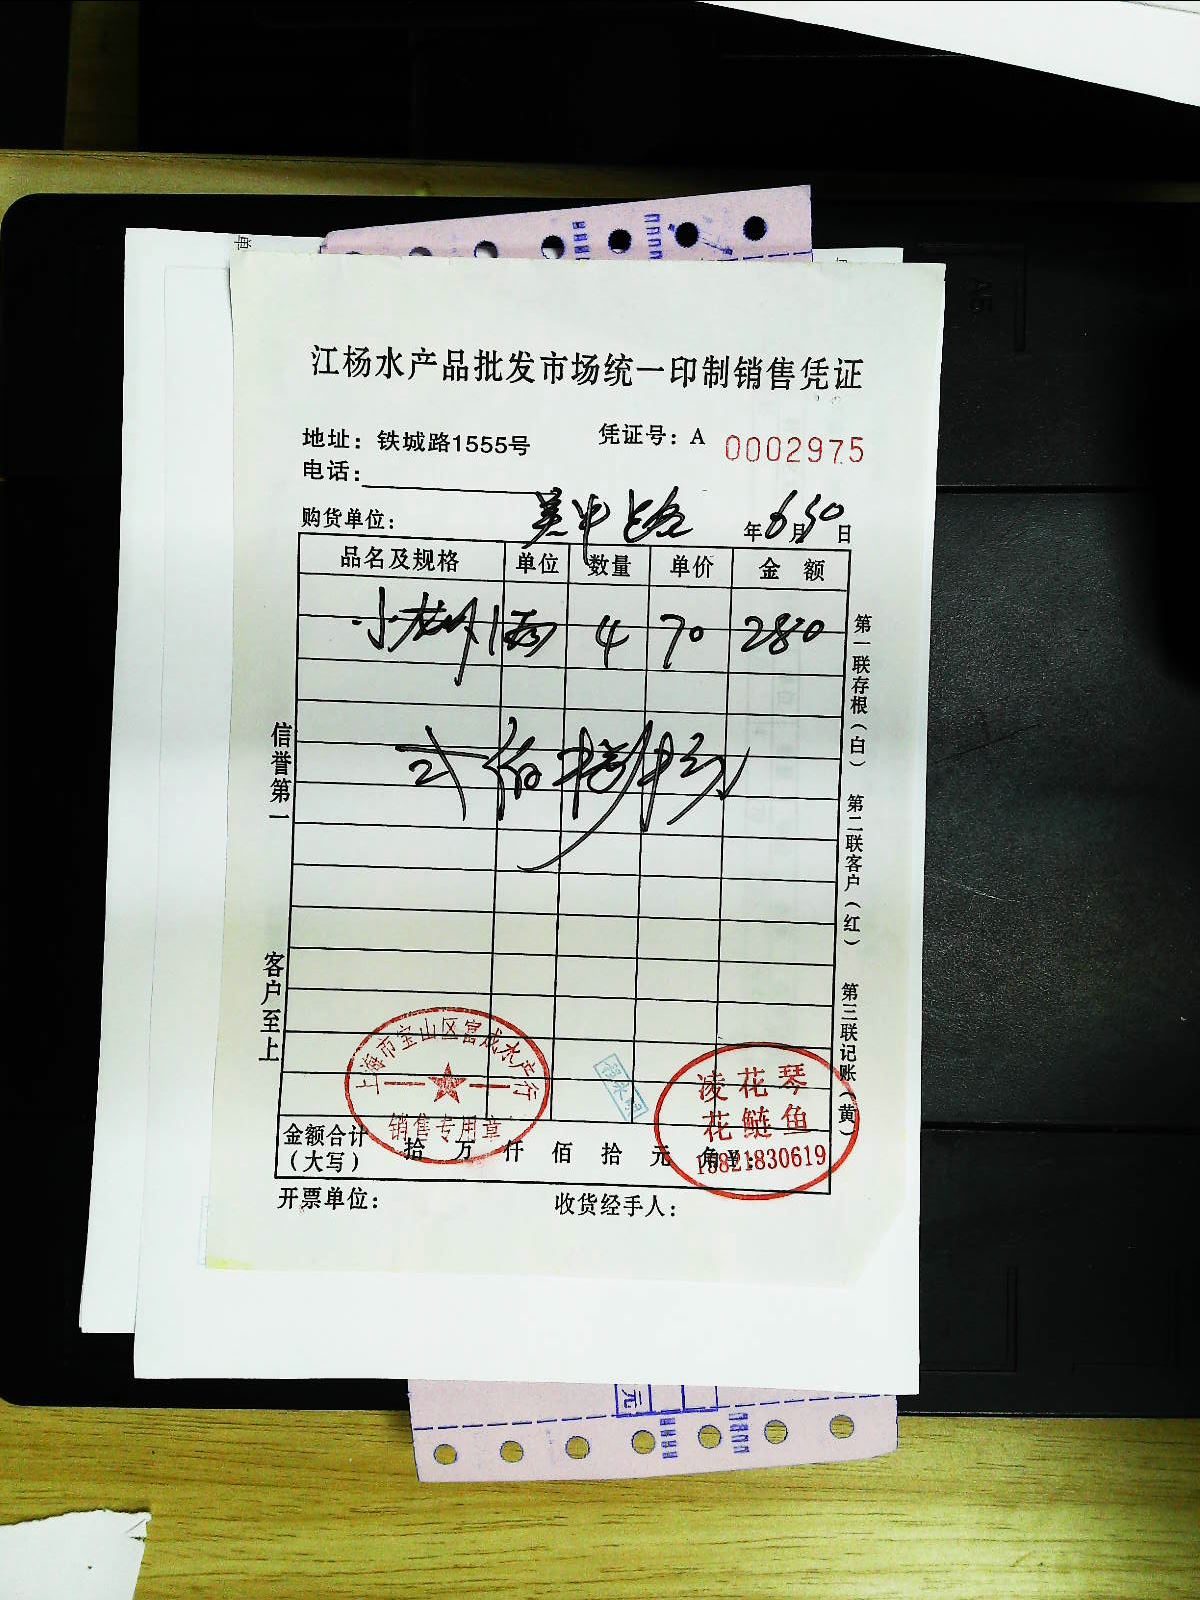 江杨水产品批发市场统一印制销售凭证
地址：铁城路1555号 凭证号：A 0002975
电话：
购货单位： 吴中路 年6月30日
品名及规格 单位 数量 单价 金额
小龙虾 4 70 280
贰佰捌拾元
信誉第一
客户至上
第一联存根（白）
第二联客户（红）
第三联记账（黄）
上海市宝山区富成水产行
销售专用章
凌花琴
花鲢鱼
金额合计（大写） 拾 万 仟 佰 拾 元 角 ¥：
开票单位： 收货经手人：
元
A5